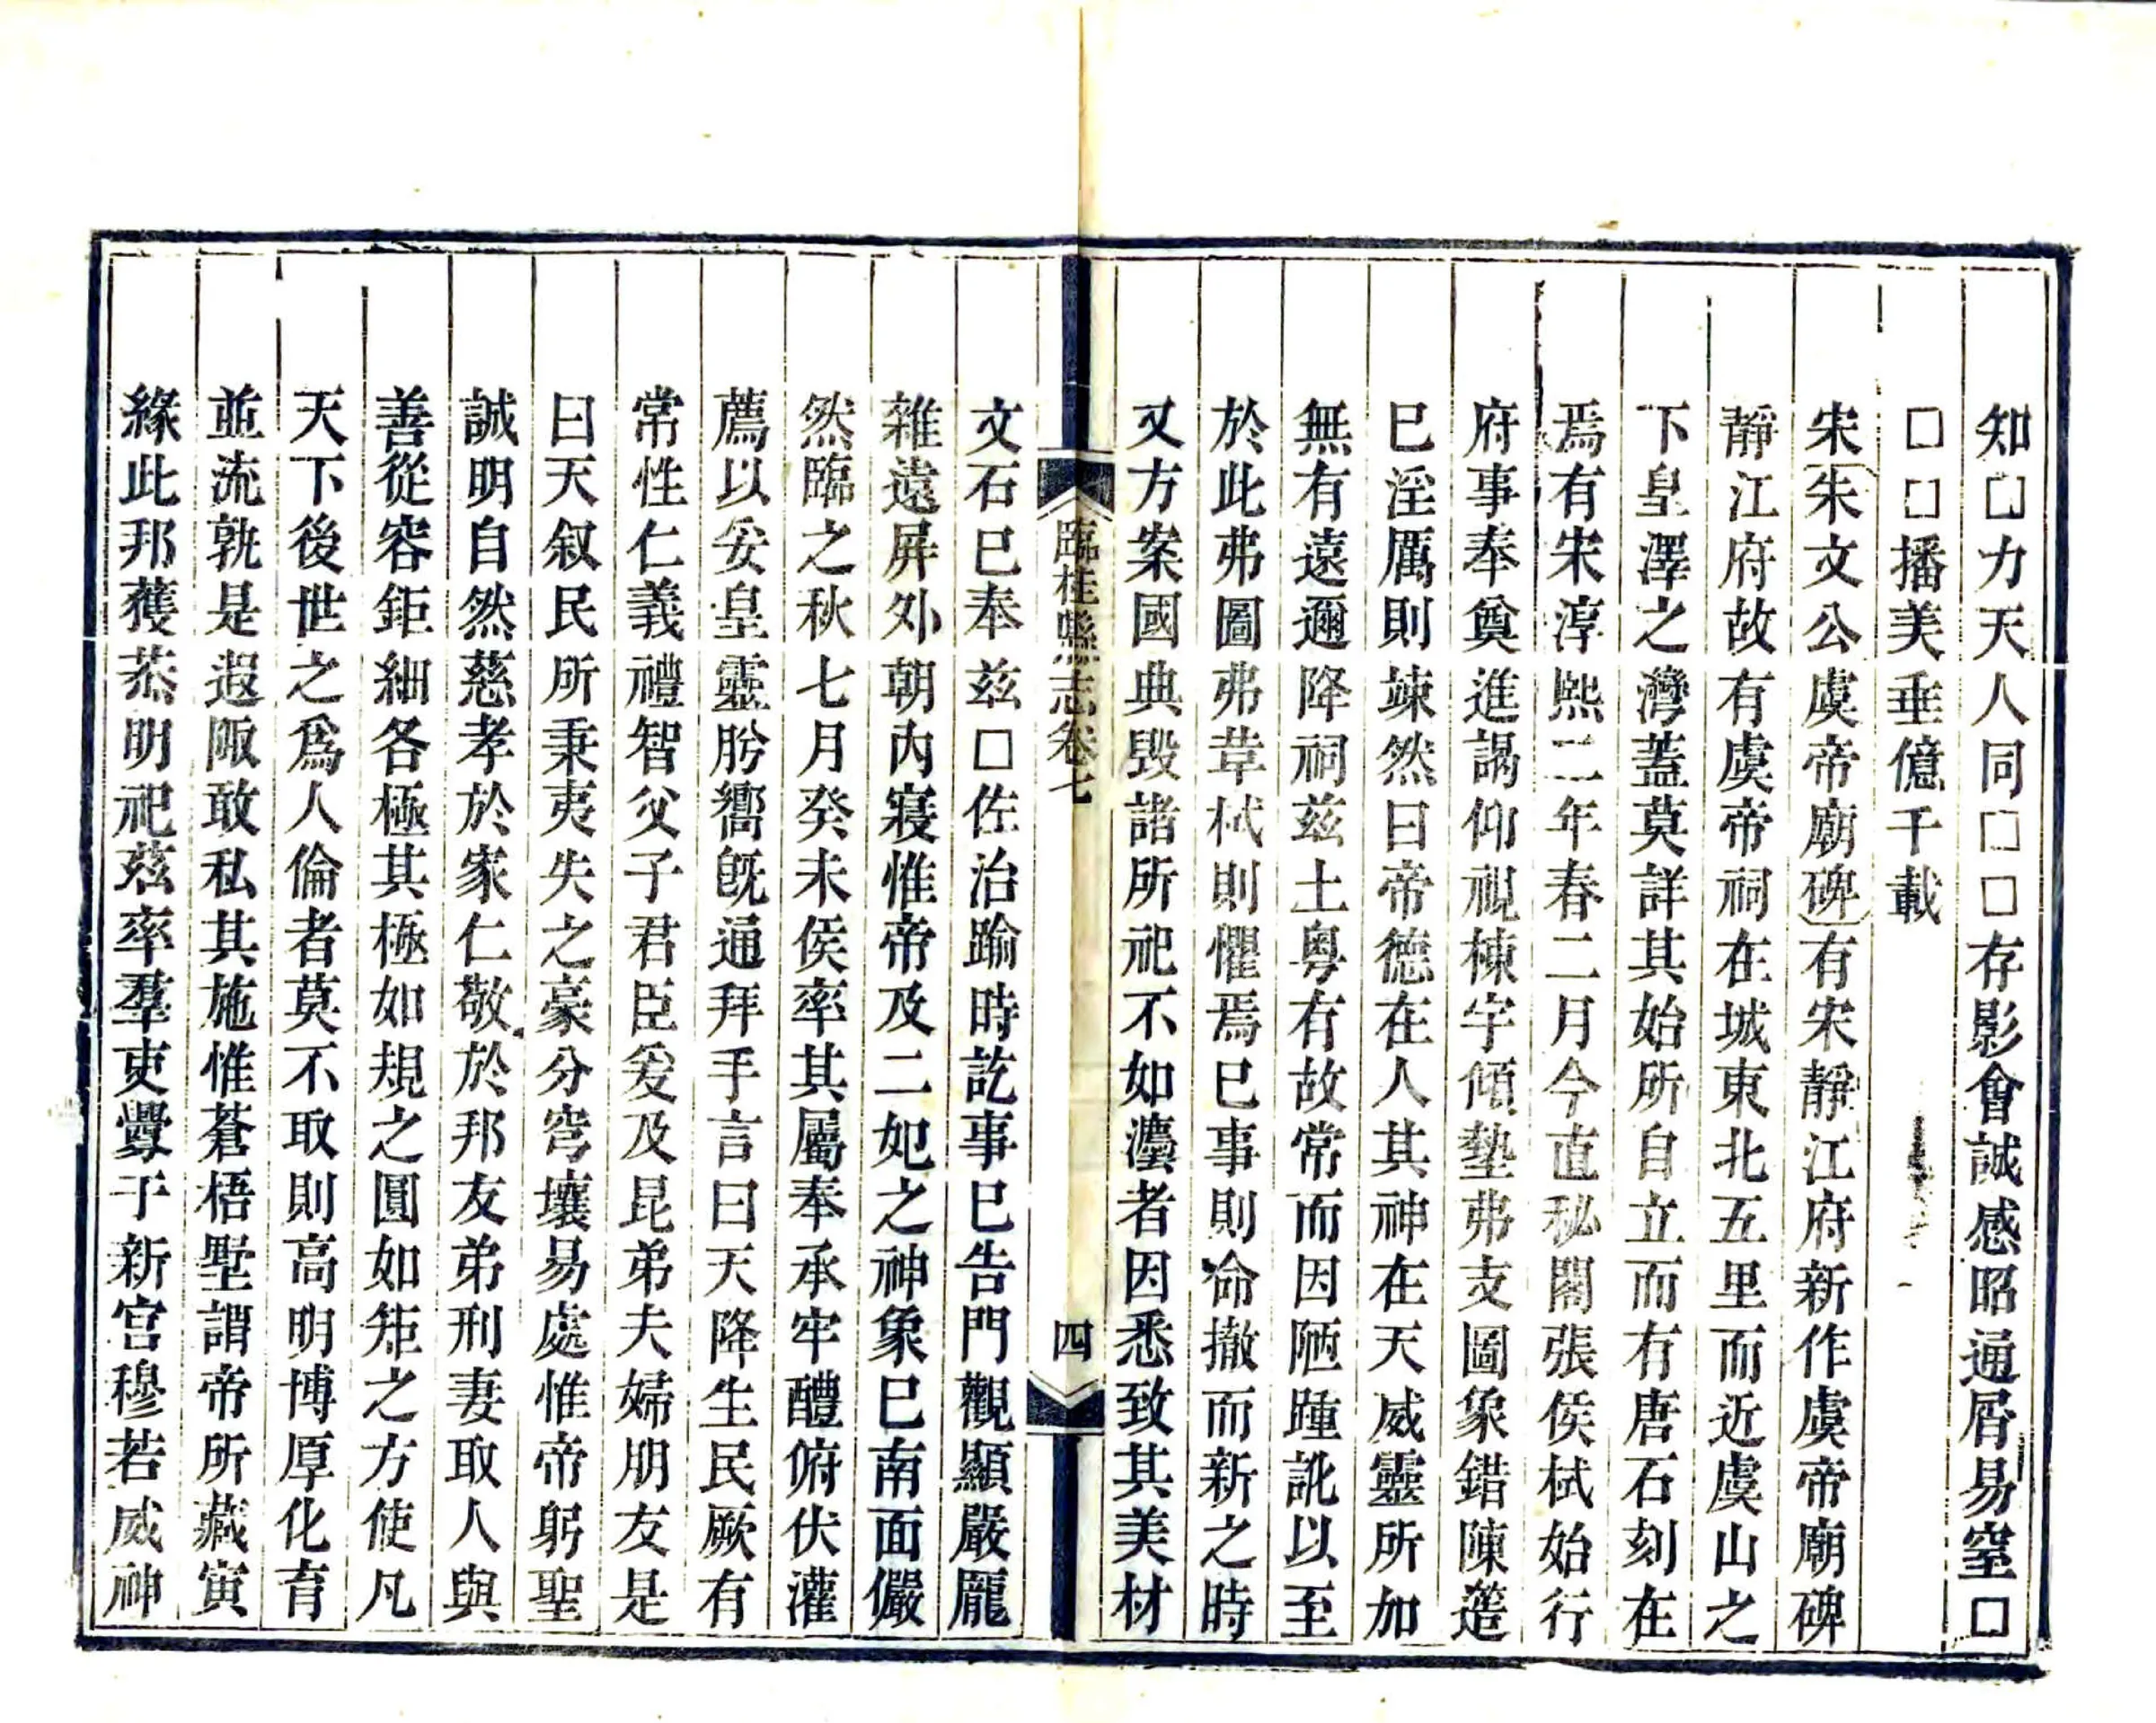 知□力天人同□□存影會誠感昭通屑易窒□
□□播美垂億千載
宋朱文公虞帝廟碑有宋靜江府新作虞帝廟碑
靜江府故有虞帝祠在城東北五里而近虞山之
下皇澤之灣蓋莫詳其始所自立而有唐石刻在
焉有宋淳熙二年春二月今直秘閣張侯栻始行
府事奉奠進謁仰視棟宇傾墊弗支圖象錯陳簉
巳淫厲則竦然曰帝德在人其神在天威靈所加
無有遠邇降祠兹土粵有故常而因陋踵訛以至
於此弗圖弗葺栻則懼焉巳事則命撤而新之時
又方案國典毀諸所祀不如灋者因悉致其美材
臨桂縣志卷七
四
文石巳奉兹□佐治踰時訖事巳告門觀顯嚴龎
雜遠屏外朝內寢惟帝及二妃之神象巳南面儼
然臨之秋七月癸未侯率其屬奉承牢醴俯伏灌
薦以妥皇靈肹嚮旣通拜手言曰天降生民厥有
常性仁義禮智父子君臣爰及昆弟夫婦朋友是
曰天叙民所秉夷失之豪分穹壤易處惟帝躬聖
誠明自然慈孝於家仁敬於邦友弟刑妻取人與
善從容鉅細各極其極如規之圓如矩之方使凡
天下後世之爲人倫者莫不取則高明博厚化育
並流孰是遐陬敢私其施惟蒼梧墅謂帝所藏寅
緣此邦蒦烝明祀兹率羣吏釁于新宫穆若威神